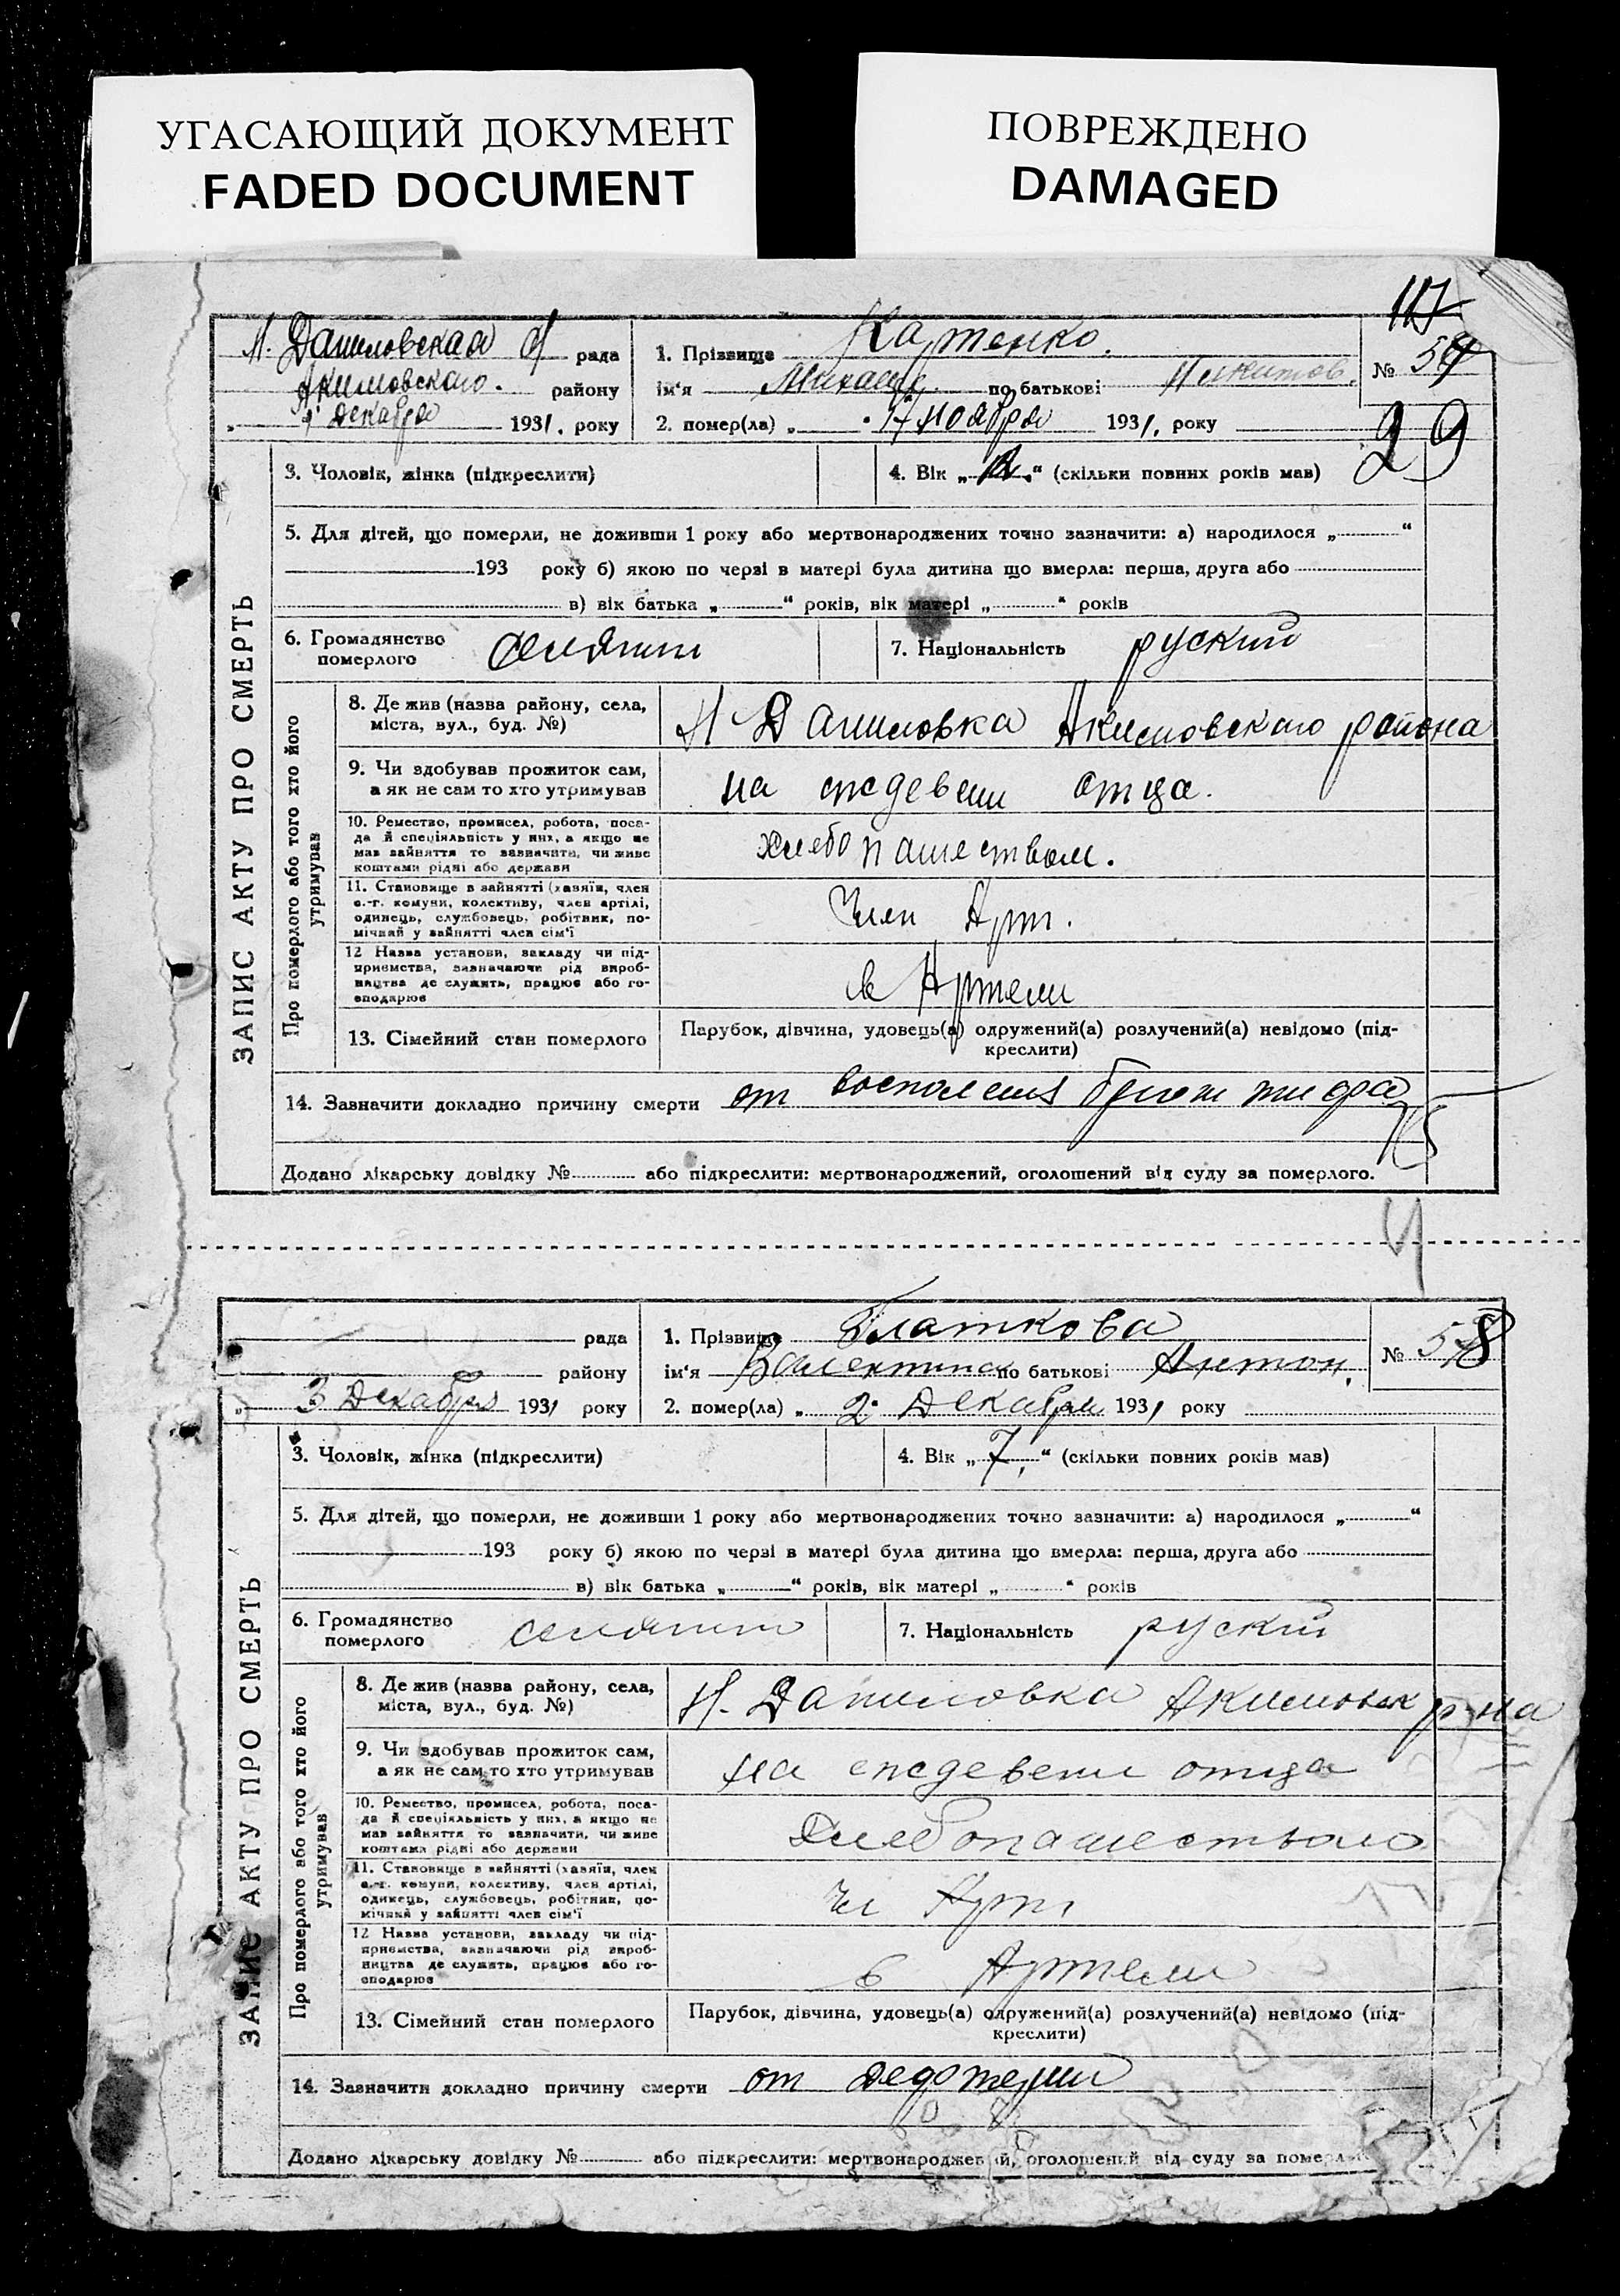 УГАСАЮЩИЙ ДОКУМЕНТ
FADED DOCUMENT
ПОВРЕЖДЕНО
DAMAGED
117
Н. Даниловская рада
Акимовского. району
1 декабря 1931. року
1. Прізвище Картенко.
ім'я Михаил по батькові Никитов.
2. помер(ла) „ 17 ноября 1931. року
№ 57
29
ЗАПИС АКТУ ПРО СМЕРТЬ
3. Чоловік, жінка (підкреслити)
4. Вік „ “ (скільки повних років мав)
5. Для дітей, що померли, не доживши 1 року або мертвонароджених точно зазначити: а) народилося „ “
193 року б) якою по черзі в матері була дитина що вмерла: перша, друга або
в) вік батька „ “ років, вік матері „ “ років
6. Громадянство померлого селянин
7. Національність руский
Про померлого або того хто його утримував
8. Де жив (назва району, села, міста, вул., буд. №)
Н Даниловка Акимовского района
9. Чи здобував прожиток сам, а як не сам то хто утримував
на иждевени отца.
10. Ремество, промисел, робота, посада й спеціяльність у них, а якщо не мав зайняття то зазначити, чи живе коштами рідні або держави
хлебопашеством.
11. Становище в зайнятті (хазяїн, член с.-г. комуни, колективу, член артілі, одинець, службовець, робітник, помічний у зайнятті член сім'ї
Член Арт.
12 Назва установи, закладу чи підприємства, зазначаючи рід виробництва де служить, працює або господарює
в Артели
13. Сімейний стан померлого
Парубок, дівчина, удовець(а) одружений(а) розлучений(а) невідомо (підкреслити)
14. Зазначити докладно причину смерти от воспаления брюш тифа
Додано лікарську довідку № або підкреслити: мертвонароджений, оголошений від суду за померлого.
рада
району
„ 3 Декабря 1931 року
1. Прізвище Глаткова
ім'я Валентина по батькові Антон.
2. помер(ла) „ 2 Декабря 1931 року
№ 58
ЗАПИС АКТУ ПРО СМЕРТЬ
3. Чоловік, жінка (підкреслити)
4. Вік „ 7, “ (скільки повних років мав)
5. Для дітей, що померли, не доживши 1 року або мертвонароджених точно зазначити: а) народилося „ “
193 року б) якою по черзі в матері була дитина що вмерла: перша, друга або
в) вік батька „ “ років, вік матері „ “ років
6. Громадянство померлого селянин
7. Національність руский
Про померлого або того хто його утримував
8. Де жив (назва району, села, міста, вул., буд. №)
Н. Даниловка Акимовск р-на
9. Чи здобував прожиток сам, а як не сам то хто утримував
на иждевени отца
10. Ремество, промисел, робота, посада й спеціяльність у них, а якщо не мав зайняття то зазначити, чи живе коштами рідні або держави
Хлебопашество
11. Становище в зайнятті (хазяїн, член с.-г. комуни, колективу, член артілі, одинець, службовець, робітник, помічний у зайнятті член сім'ї
Чл Арт
12 Назва установи, закладу чи підприємства, зазначаючи рід виробництва де служить, працює або господарює
в Артели
13. Сімейний стан померлого
Парубок, дівчина, удовець(а) одружений(а) розлучений(а) невідомо (підкреслити)
14. Зазначити докладно причину смерти от
Додано лікарську довідку № або підкреслити: мертвонароджений, оголошений від суду за померл